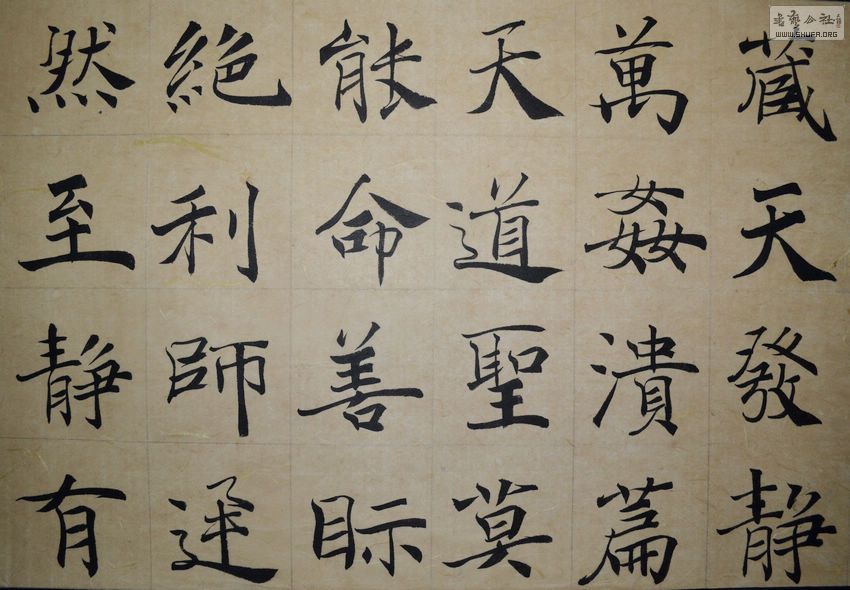 藏天發靜
萬姦潰篇
天道聖莫
能命善眎
絕利師
然至靜有
書藝公社
WWW.SHUFA.ORG